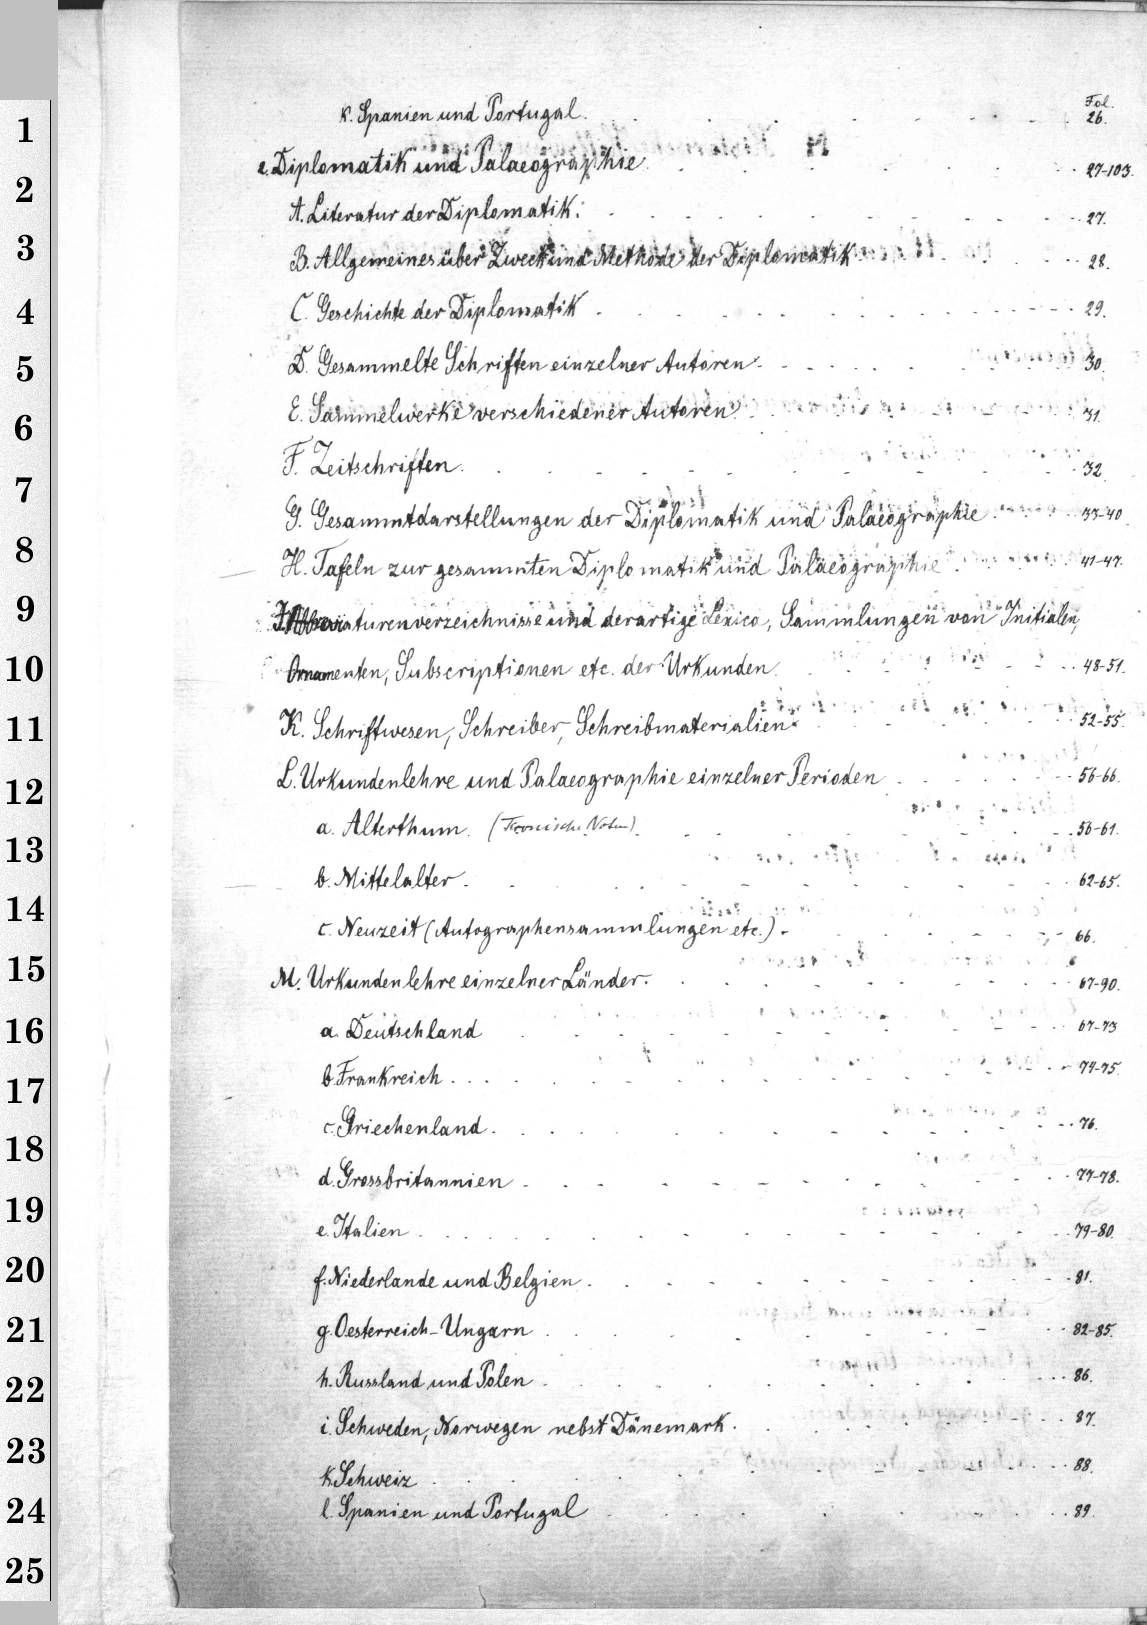 Fol.
k. Spanien und Portugal. 26.
e. Diplomatik und Palaeographie 27-103.
A. Literatur der Diplomatik. 27.
B. Allgemeines über Zweck und Methode der Diplomatik 28.
C. Geschichte der Diplomatik 29.
D. Gesammelte Schriften einzelner Autoren 30.
E. Sammelwerke verschiedener Autoren 31.
F. Zeitschriften 32.
G. Gesammtdarstellungen der Diplomatik und Palaeographie 33-40
H. Tafeln zur gesammten Diplomatik und Palaeographie 41-47.
J. Abbreviaturenverzeichnisse und derartige Lexica, Sammlungen von Initialen,
Ornamenten, Subscriptionen etc. der Urkunden 48-51.
K. Schriftwesen, Schreiber, Schreibmaterialien 52-55.
L. Urkundenlehre und Palaeographie einzelner Perioden 56-66.
a. Alterthum. (Tironische Noten) 56-61.
b. Mittelalter 62-65.
c. Neuzeit (Autographensammlungen etc.) 66.
M. Urkundenlehre einzelner Länder. 67-90.
a. Deutschland 67-73
b. Frankreich 74-75.
c. Griechenland 76.
d. Grossbritannien 77-78.
e. Italien 79-80.
f. Niederlande und Belgien 81.
g. Oesterreich-Ungarn 82-85.
h. Russland und Polen 86.
i. Schweden, Norwegen nebst Dänemark 87.
k. Schweiz 88.
l. Spanien und Portugal 89.
1
2
3
4
5
6
7
8
9
10
11
12
13
14
15
16
17
18
19
20
21
22
23
24
25